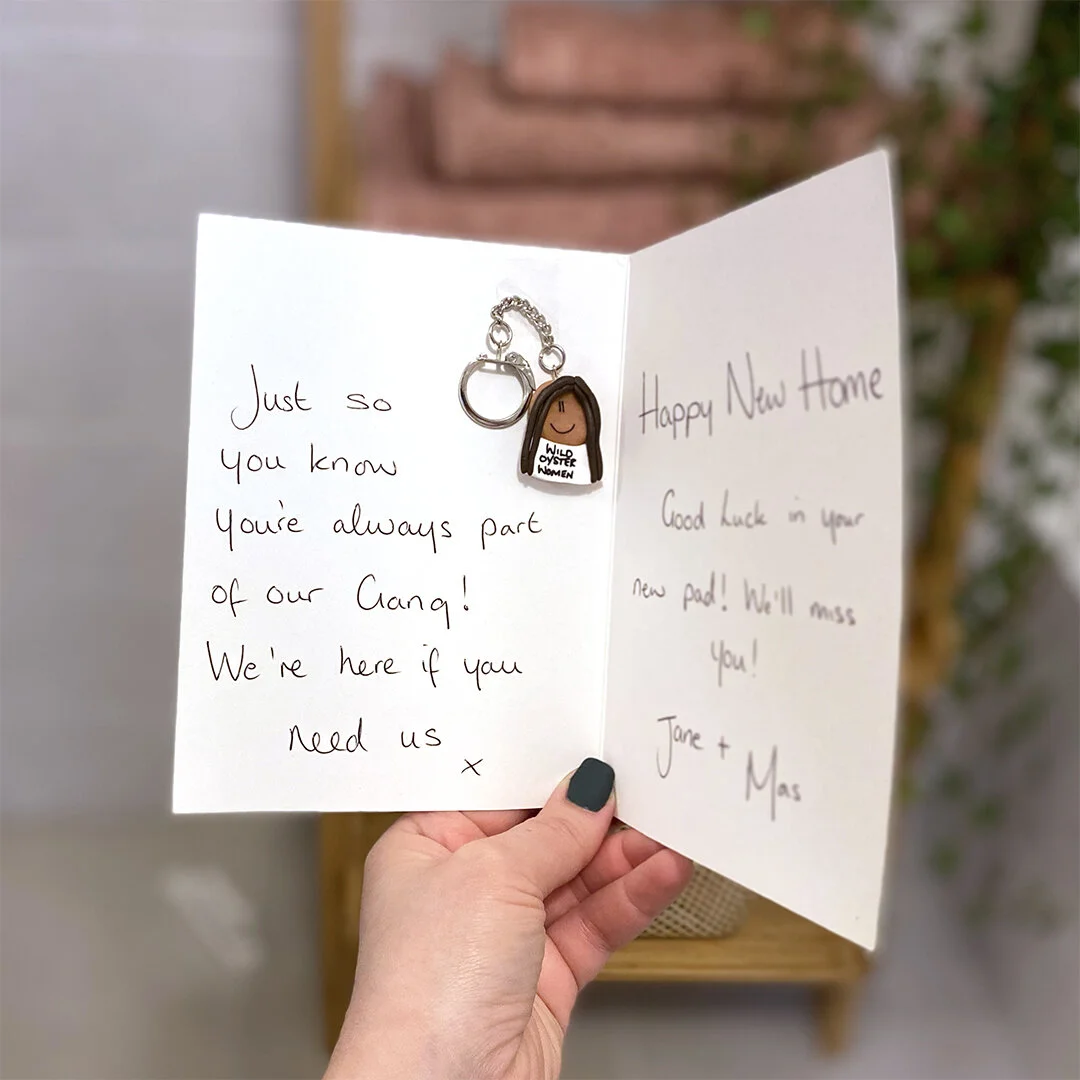 Just so
you know
you're always part
of our Gang!
We're here if you
need us
x
WILD
OYSTER
WOMEN
Happy New Home
Good Luck in your
new pad! We'll miss
you!
Jane +
Mas